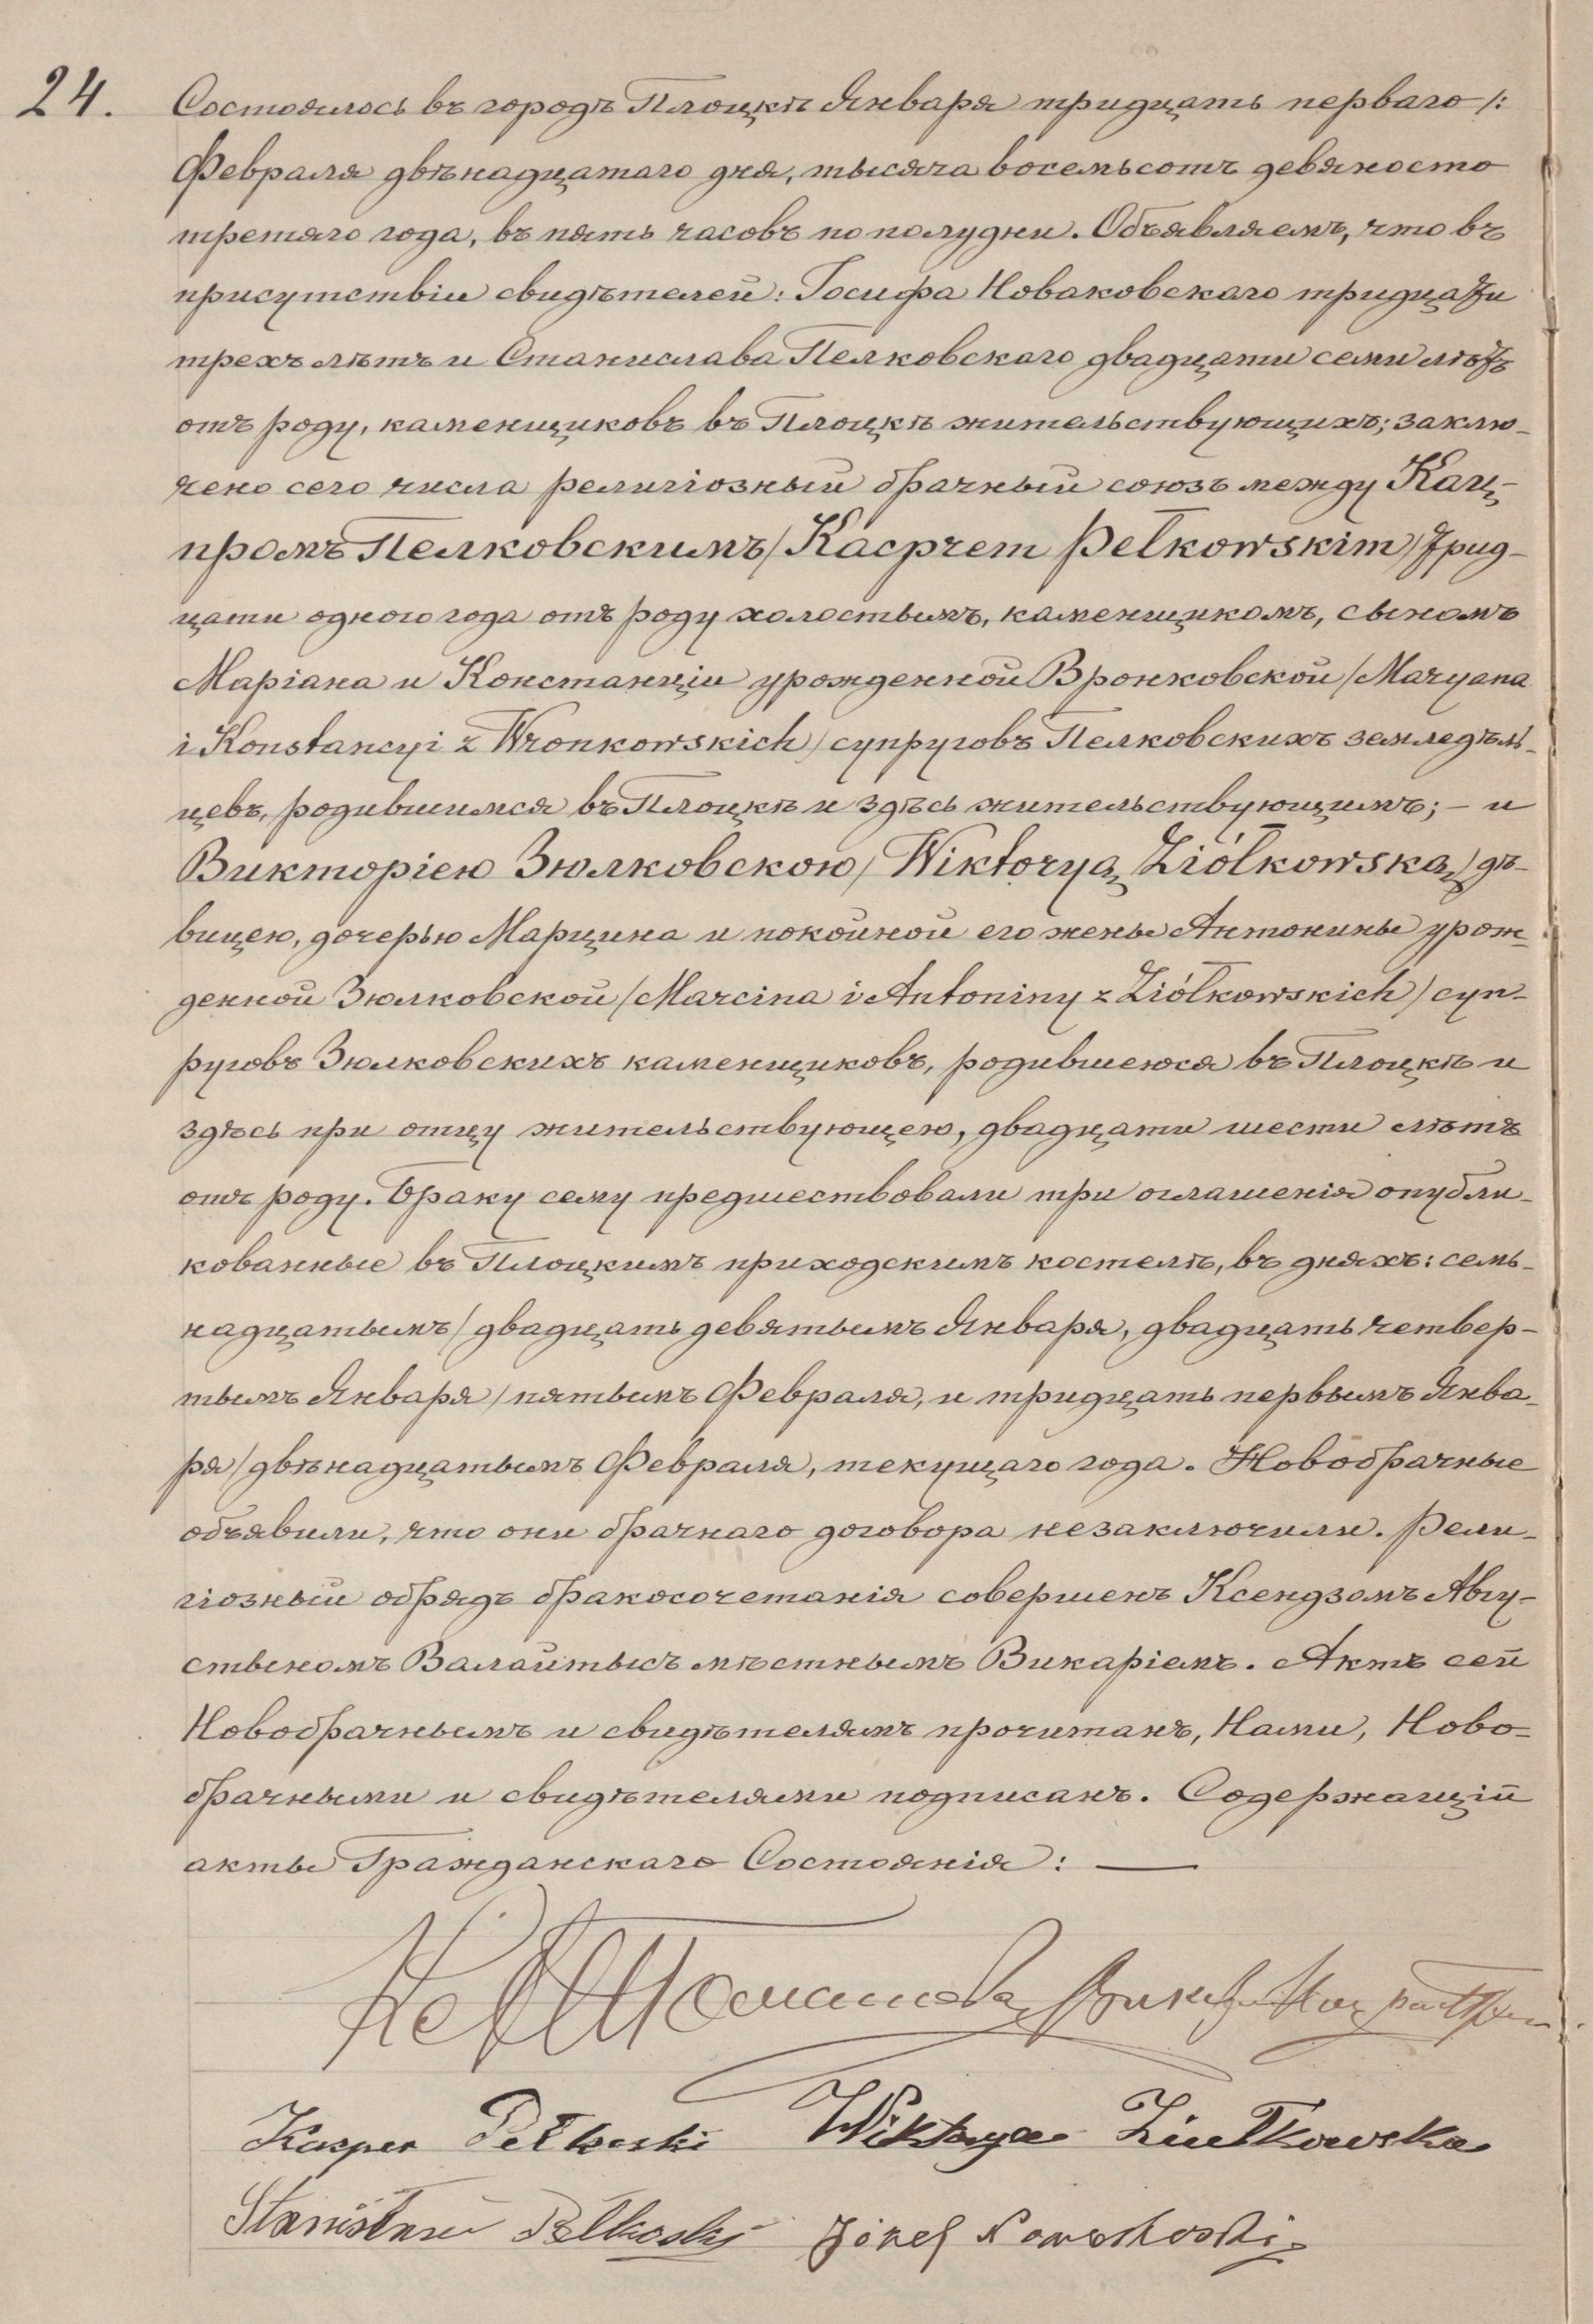 24. Состоялось въ городѣ Плоцкѣ Января тридцать перваго /:
Февраля двѣнадцатаго дня, тысяча восемьсотъ девяносто
третяго года, въ пять часовъ по полудни. Объявляемъ, что въ
присутствіи свидѣтелей: Іосифа Новаковскаго тридцати
трехъ лѣтъ и Станислава Пелковскаго двадцати семи лѣтъ
отъ роду, каменщиковъ въ Плоцкѣ жительствующихъ; заклю-
чено сего числа религіозный брачный союзъ между Кац-
промъ Пелковскимъ /Kacprem Pełkowskim/ трид-
цати одного года отъ роду холостымъ, каменщикомъ, сыномъ
Маріана и Констанціи урожденной Вронковской /Maryana
i Konstancyi z Wronkowskich/ супруговъ Пелковскихъ земледѣль-
цевъ, родившимся въ Плоцкѣ и здѣсь жительствующимъ; - и
Викторіею Зюлковскою /Wiktoryą Ziółkowską/ дѣ-
вицею, дочерью Марцина и покойной его жены Антонины урож-
денной Зюлковской /Marcina i Antoniny z Ziółkowskich/ суп-
руговъ Зюлковскихъ каменщиковъ, родившеюся въ Плоцкѣ и
здѣсь при отцу жительствующею, двадцати шести лѣтъ
отъ роду. Браку сему предшествовали три оглашенія опубли-
кованные въ Плоцкимъ приходскимъ костелѣ, въ дняхъ: семь-
надцатымъ / двадцать девятымъ Января, двадцать четвер-
тымъ Января / пятымъ Февраля, и тридцать первымъ Янва-
ря / двѣнадцатымъ Февраля, текущаго года. Новобрачные
объявили, что они брачнаго договора незаключили. Рели-
гіозный обрядъ бракосочетанія совершенъ Ксендзомъ Авгу-
стыномъ Валайтысъ мѣстнымъ Викаріемъ. Актъ сей
Новобрачнымъ и свидѣтелямъ прочитанъ, Нами, Ново-
брачными и свидѣтелями подписанъ. Содержащій
акты Гражданскаго Состоянія: —
Kasper Pełkoski Wiktorya Ziułkowska
Stanisław Pełkoski Józef Nowakoski